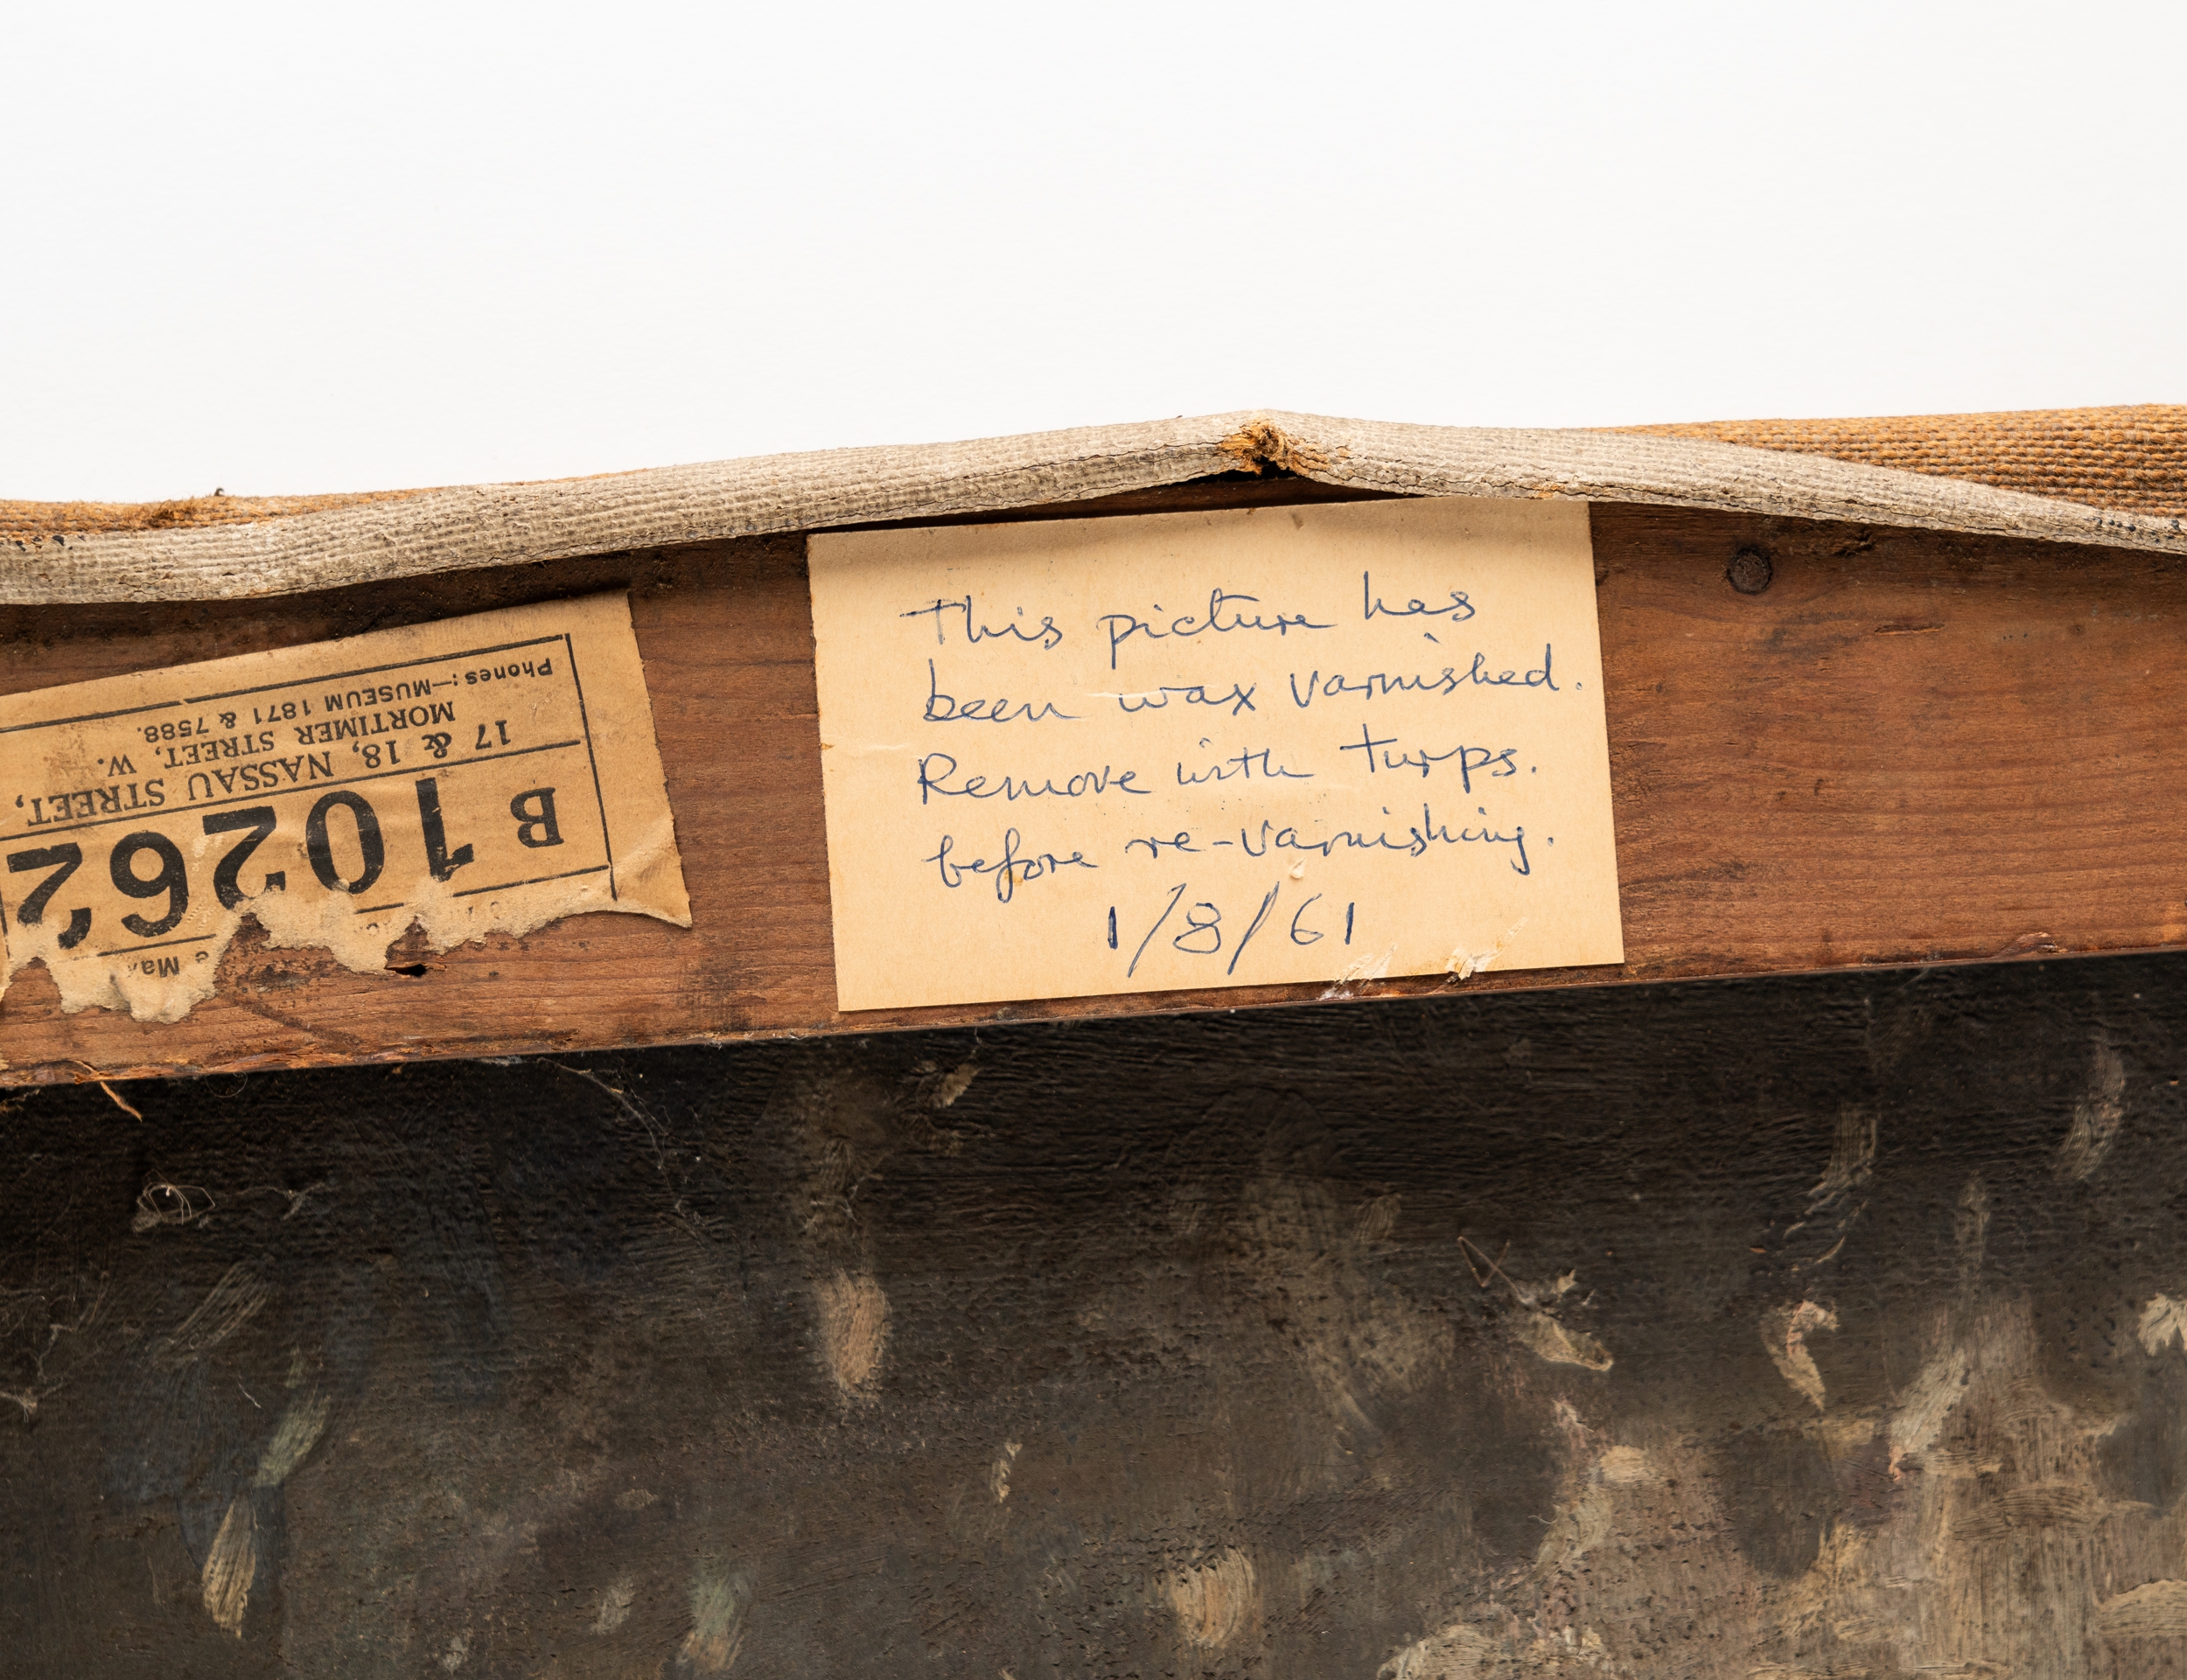 This picture has
been wax varnished.
Remove with turps.
before re-varnishing.
1/8/61
B 10262
17 & 18, NASSAU STREET,
MORTIMER STREET, W.
Phones:—MUSEUM 1871 & 7588.